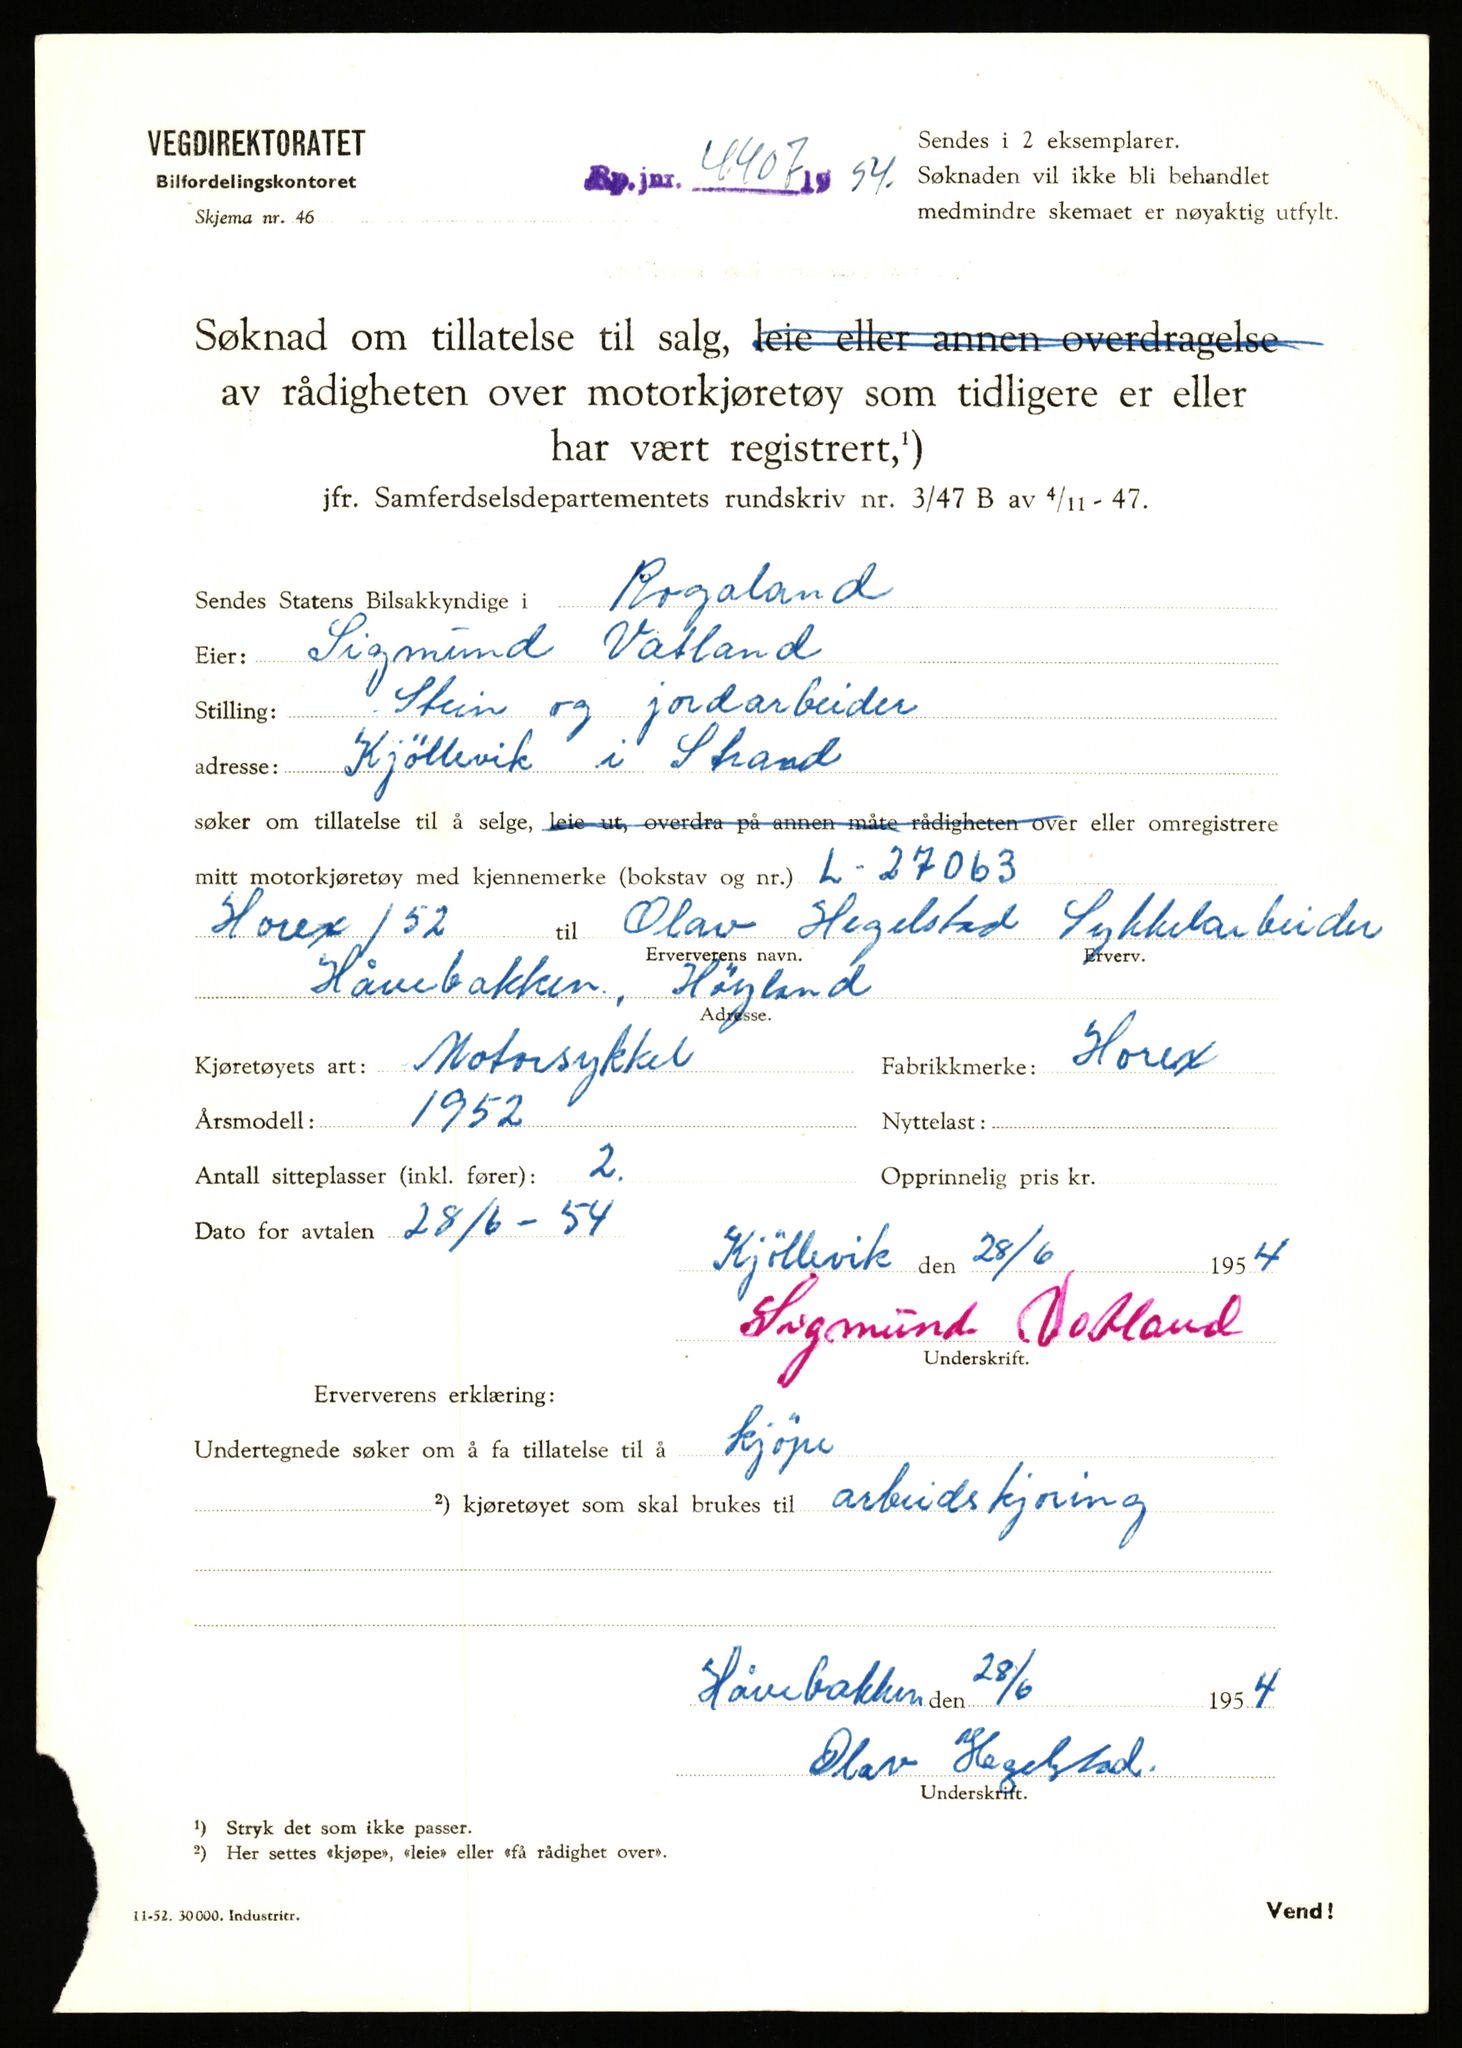 VEGDIREKTORATET
Bilfordelingskontoret
Skjema nr. 46
Rp. jnr. 4407 19 54.
Sendes i 2 eksemplarer.
Søknaden vil ikke bli behandlet
medmindre skemaet er nøyaktig utfylt.
Søknad om tillatelse til salg, leie eller annen overdragelse
av rådigheten over motorkjøretøy som tidligere er eller
har vært registrert,¹)
jfr. Samferdselsdepartementets rundskriv nr. 3/47 B av 4/11 - 47.
Sendes Statens Bilsakkyndige i Rogaland
Eier: Sigmund Vatland
Stilling: Stein og jordarbeider
adresse: Kjöllevik i Strand
søker om tillatelse til å selge, leie ut, overdra på annen måte rådigheten over eller omregistrere
mitt motorkjøretøy med kjennemerke (bokstav og nr.) L - 27063
Horex / 52 til Olav Hegelstad Sykkelarbeider
Erververens navn. Erverv.
Håvebakken, Höyland
Adresse.
Kjøretøyets art: Motorsykkel Fabrikkmerke: Horex
Årsmodell: 1952 Nyttelast:
Antall sitteplasser (inkl. fører): 2. Opprinnelig pris kr.
Dato for avtalen 28/6 - 54
Kjöllevik den 28/6 1954
Sigmund Vatland
Underskrift.
Erververens erklæring:
Undertegnede søker om å fa tillatelse til å kjöpe
²) kjøretøyet som skal brukes til arbeidskjoring
Håvebakken den 28/6 1954
Olav Hegelstad.
Underskrift.
¹) Stryk det som ikke passer.
²) Her settes «kjøpe», «leie» eller «få rådighet over».
11-52. 30000. Industritr.
Vend!